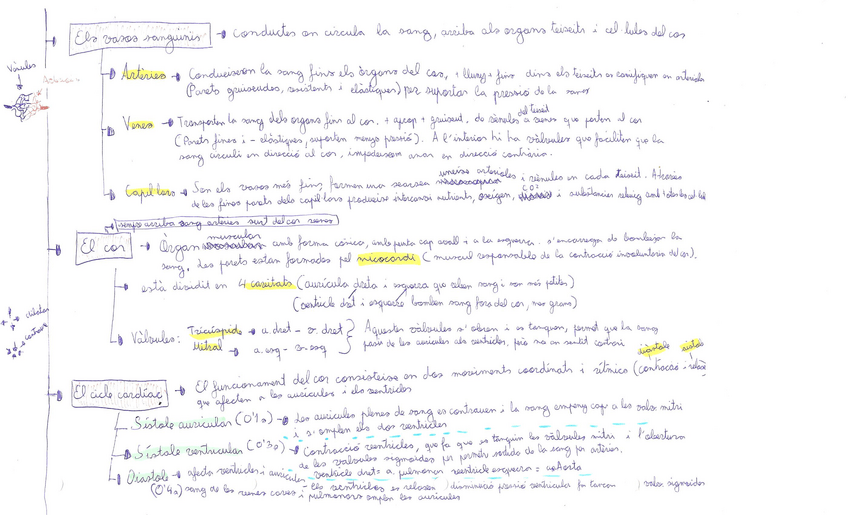 Els vasos sanguinis → conductes on circula la sang, arriba als organs teixeits i cel·lules del cos
Vàlvules
Artèries → Condueixen la sang fins els òrgans del cos, + lluny + fins dins els teixits es ramifiquen en arterioles
(Parets gruixudes, resistents i elàstiques) per suportar la pressió de la sang
del teixit
Venes → Transporten la sang dels organs fins al cor. + aprop + gruixud. de vènules a venes que porten al cor
(Parets fines i - elàstiques, suporten menys pressió). A l'interior hi ha vàlvules que faciliten que la
sang circuli en direcció al cor, impedeixen anar en direcció contrària.
uneixe arterioles
Capil·lars → Son els vasos més fins, formen una xarxa i vènules en cada teixit. A través
de les fines parets dels capil·lars produeixe intercanvi nutrients, oxigen, CO2 i substàncies rebuig amb
sempre arriba sang artèries surt del cor venes
muscular
El cor → Òrgan amb forma cònica, amb punta cap avall i a la esquerra. s'encarrega de bombejar la
sang. Les parets estan formades pel miocardi (muscul responsable de la contracció involuntaria del cor).
està dividit en 4 cavitats (aurícula dreta i esquerra que reben sang i son més petites)
(ventricle dret i esquerre bomben sang fora del cor, mes grans)
Vàlvules: Tricúspide → a. dret - v. dret
Mitral → a. esq - v. esq
Aquestes vàlvules s'obren i es tanquen, permet que la sang
passi de les aurícules als ventricles, però no en sentit contrari
diàstole sístole
El cicle cardíac → El funcionament del cor consisteixe en dos moviments coordinats i rítmics (contracció i relaxa
que afecten a les aurícules i els ventricles
Sístole auricular (0'1s) → Les aurícules plenes de sang es contrauen i la sang empeny cap a les valv. mitri
i s'omplen els dos ventricles
Sístole ventricular (0'3s) → Contracció ventricles, que fa que es tanquin les vàlvules mitri i l'obertura
de les vàlvules sigmoides per permetre sortida de la sang per artèries.
ventricle dret = a. pulmonar ventricle esquerra = aorta
Diàstole → afecta ventricles i aurícules
- els ventricles es relaxen (disminució pressió ventricular fa tancar valv. sigmoides
(0'4s) sang de les venes caves i pulmonars omplen les aurícules